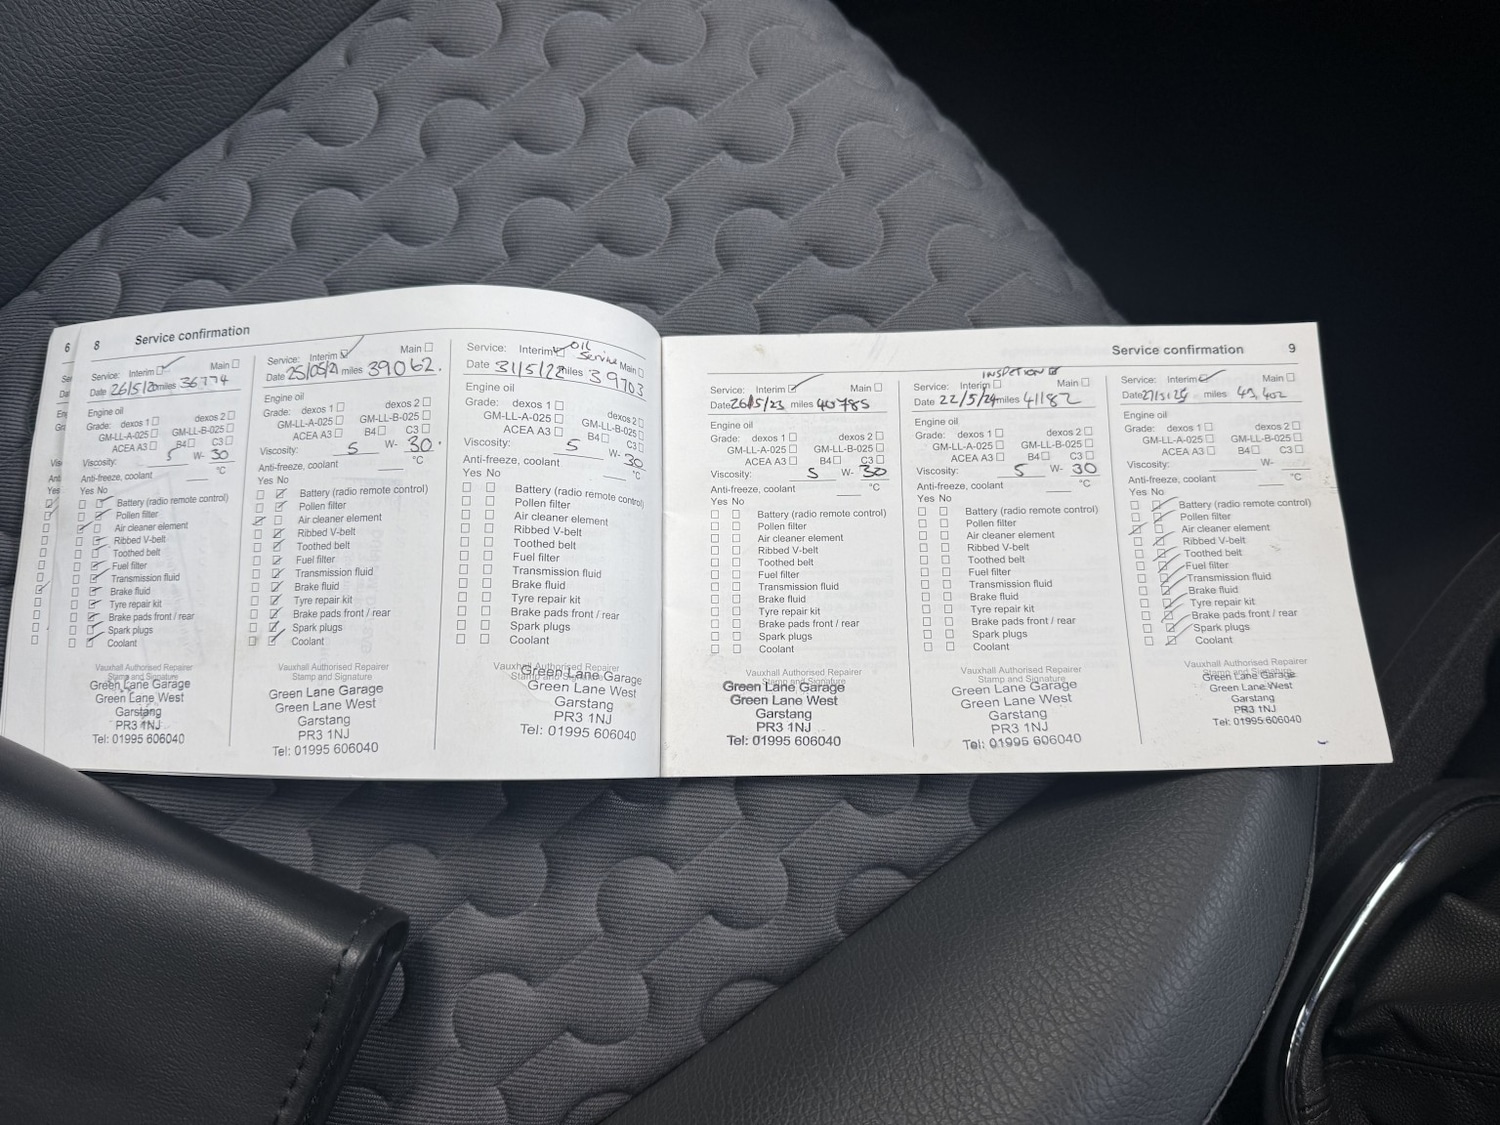 6
8
Service confirmation
Service: Interim Main
Date 26/5/20 miles 36774
Engine oil
Grade: dexos 1 dexos 2
GM-LL-A-025 GM-LL-B-025
ACEA A3 B4 C3
Viscosity: 5 W- 30
Anti-freeze, coolant °C
Yes No
Battery (radio remote control)
Pollen filter
Air cleaner element
Ribbed V-belt
Toothed belt
Fuel filter
Transmission fluid
Brake fluid
Tyre repair kit
Brake pads front / rear
Spark plugs
Coolant
Vauxhall Authorised Repairer
Stamp and Signature
Green Lane Garage
Green Lane West
Garstang
PR3 1NJ
Tel: 01995 606040
Service: Interim Main
Date 25/05/21 miles 39062.
Engine oil
Grade: dexos 1 dexos 2
GM-LL-A-025 GM-LL-B-025
ACEA A3 B4 C3
Viscosity: 5 W- 30.
Anti-freeze, coolant °C
Yes No
Battery (radio remote control)
Pollen filter
Air cleaner element
Ribbed V-belt
Toothed belt
Fuel filter
Transmission fluid
Brake fluid
Tyre repair kit
Brake pads front / rear
Spark plugs
Coolant
Vauxhall Authorised Repairer
Stamp and Signature
Green Lane Garage
Green Lane West
Garstang
PR3 1NJ
Tel: 01995 606040
Service: Interim Oil Service Main
Date 31/5/22 miles 39703
Engine oil
Grade: dexos 1 dexos 2
GM-LL-A-025 GM-LL-B-025
ACEA A3 B4 C3
Viscosity: 5 W- 30
Anti-freeze, coolant °C
Yes No
Battery (radio remote control)
Pollen filter
Air cleaner element
Ribbed V-belt
Toothed belt
Fuel filter
Transmission fluid
Brake fluid
Tyre repair kit
Brake pads front / rear
Spark plugs
Coolant
Vauxhall Authorised Repairer
Stamp and Signature
Green Lane Garage
Green Lane West
Garstang
PR3 1NJ
Tel: 01995 606040
Service confirmation
9
Service: Interim Main
Date 26/5/23 miles 40785
Engine oil
Grade: dexos 1 dexos 2
GM-LL-A-025 GM-LL-B-025
ACEA A3 B4 C3
Viscosity: 5 W- 30
Anti-freeze, coolant °C
Yes No
Battery (radio remote control)
Pollen filter
Air cleaner element
Ribbed V-belt
Toothed belt
Fuel filter
Transmission fluid
Brake fluid
Tyre repair kit
Brake pads front / rear
Spark plugs
Coolant
Vauxhall Authorised Repairer
Stamp and Signature
Green Lane Garage
Green Lane West
Garstang
PR3 1NJ
Tel: 01995 606040
INSPETION
Service: Interim Main
Date 22/5/24 miles 41182
Engine oil
Grade: dexos 1 dexos 2
GM-LL-A-025 GM-LL-B-025
ACEA A3 B4 C3
Viscosity: 5 W- 30
Anti-freeze, coolant °C
Yes No
Battery (radio remote control)
Pollen filter
Air cleaner element
Ribbed V-belt
Toothed belt
Fuel filter
Transmission fluid
Brake fluid
Tyre repair kit
Brake pads front / rear
Spark plugs
Coolant
Vauxhall Authorised Repairer
Stamp and Signature
Green Lane Garage
Green Lane West
Garstang
PR3 1NJ
Tel: 01995 606040
Service: Interim Main
Date miles
Engine oil
Grade: dexos 1 dexos 2
GM-LL-A-025 GM-LL-B-025
ACEA A3 B4 C3
Viscosity: W-
Anti-freeze, coolant °C
Yes No
Battery (radio remote control)
Pollen filter
Air cleaner element
Ribbed V-belt
Toothed belt
Fuel filter
Transmission fluid
Brake fluid
Tyre repair kit
Brake pads front / rear
Spark plugs
Coolant
Vauxhall Authorised Repairer
Stamp and Signature
Green Lane Garage
Green Lane West
Garstang
PR3 1NJ
Tel: 01995 606040